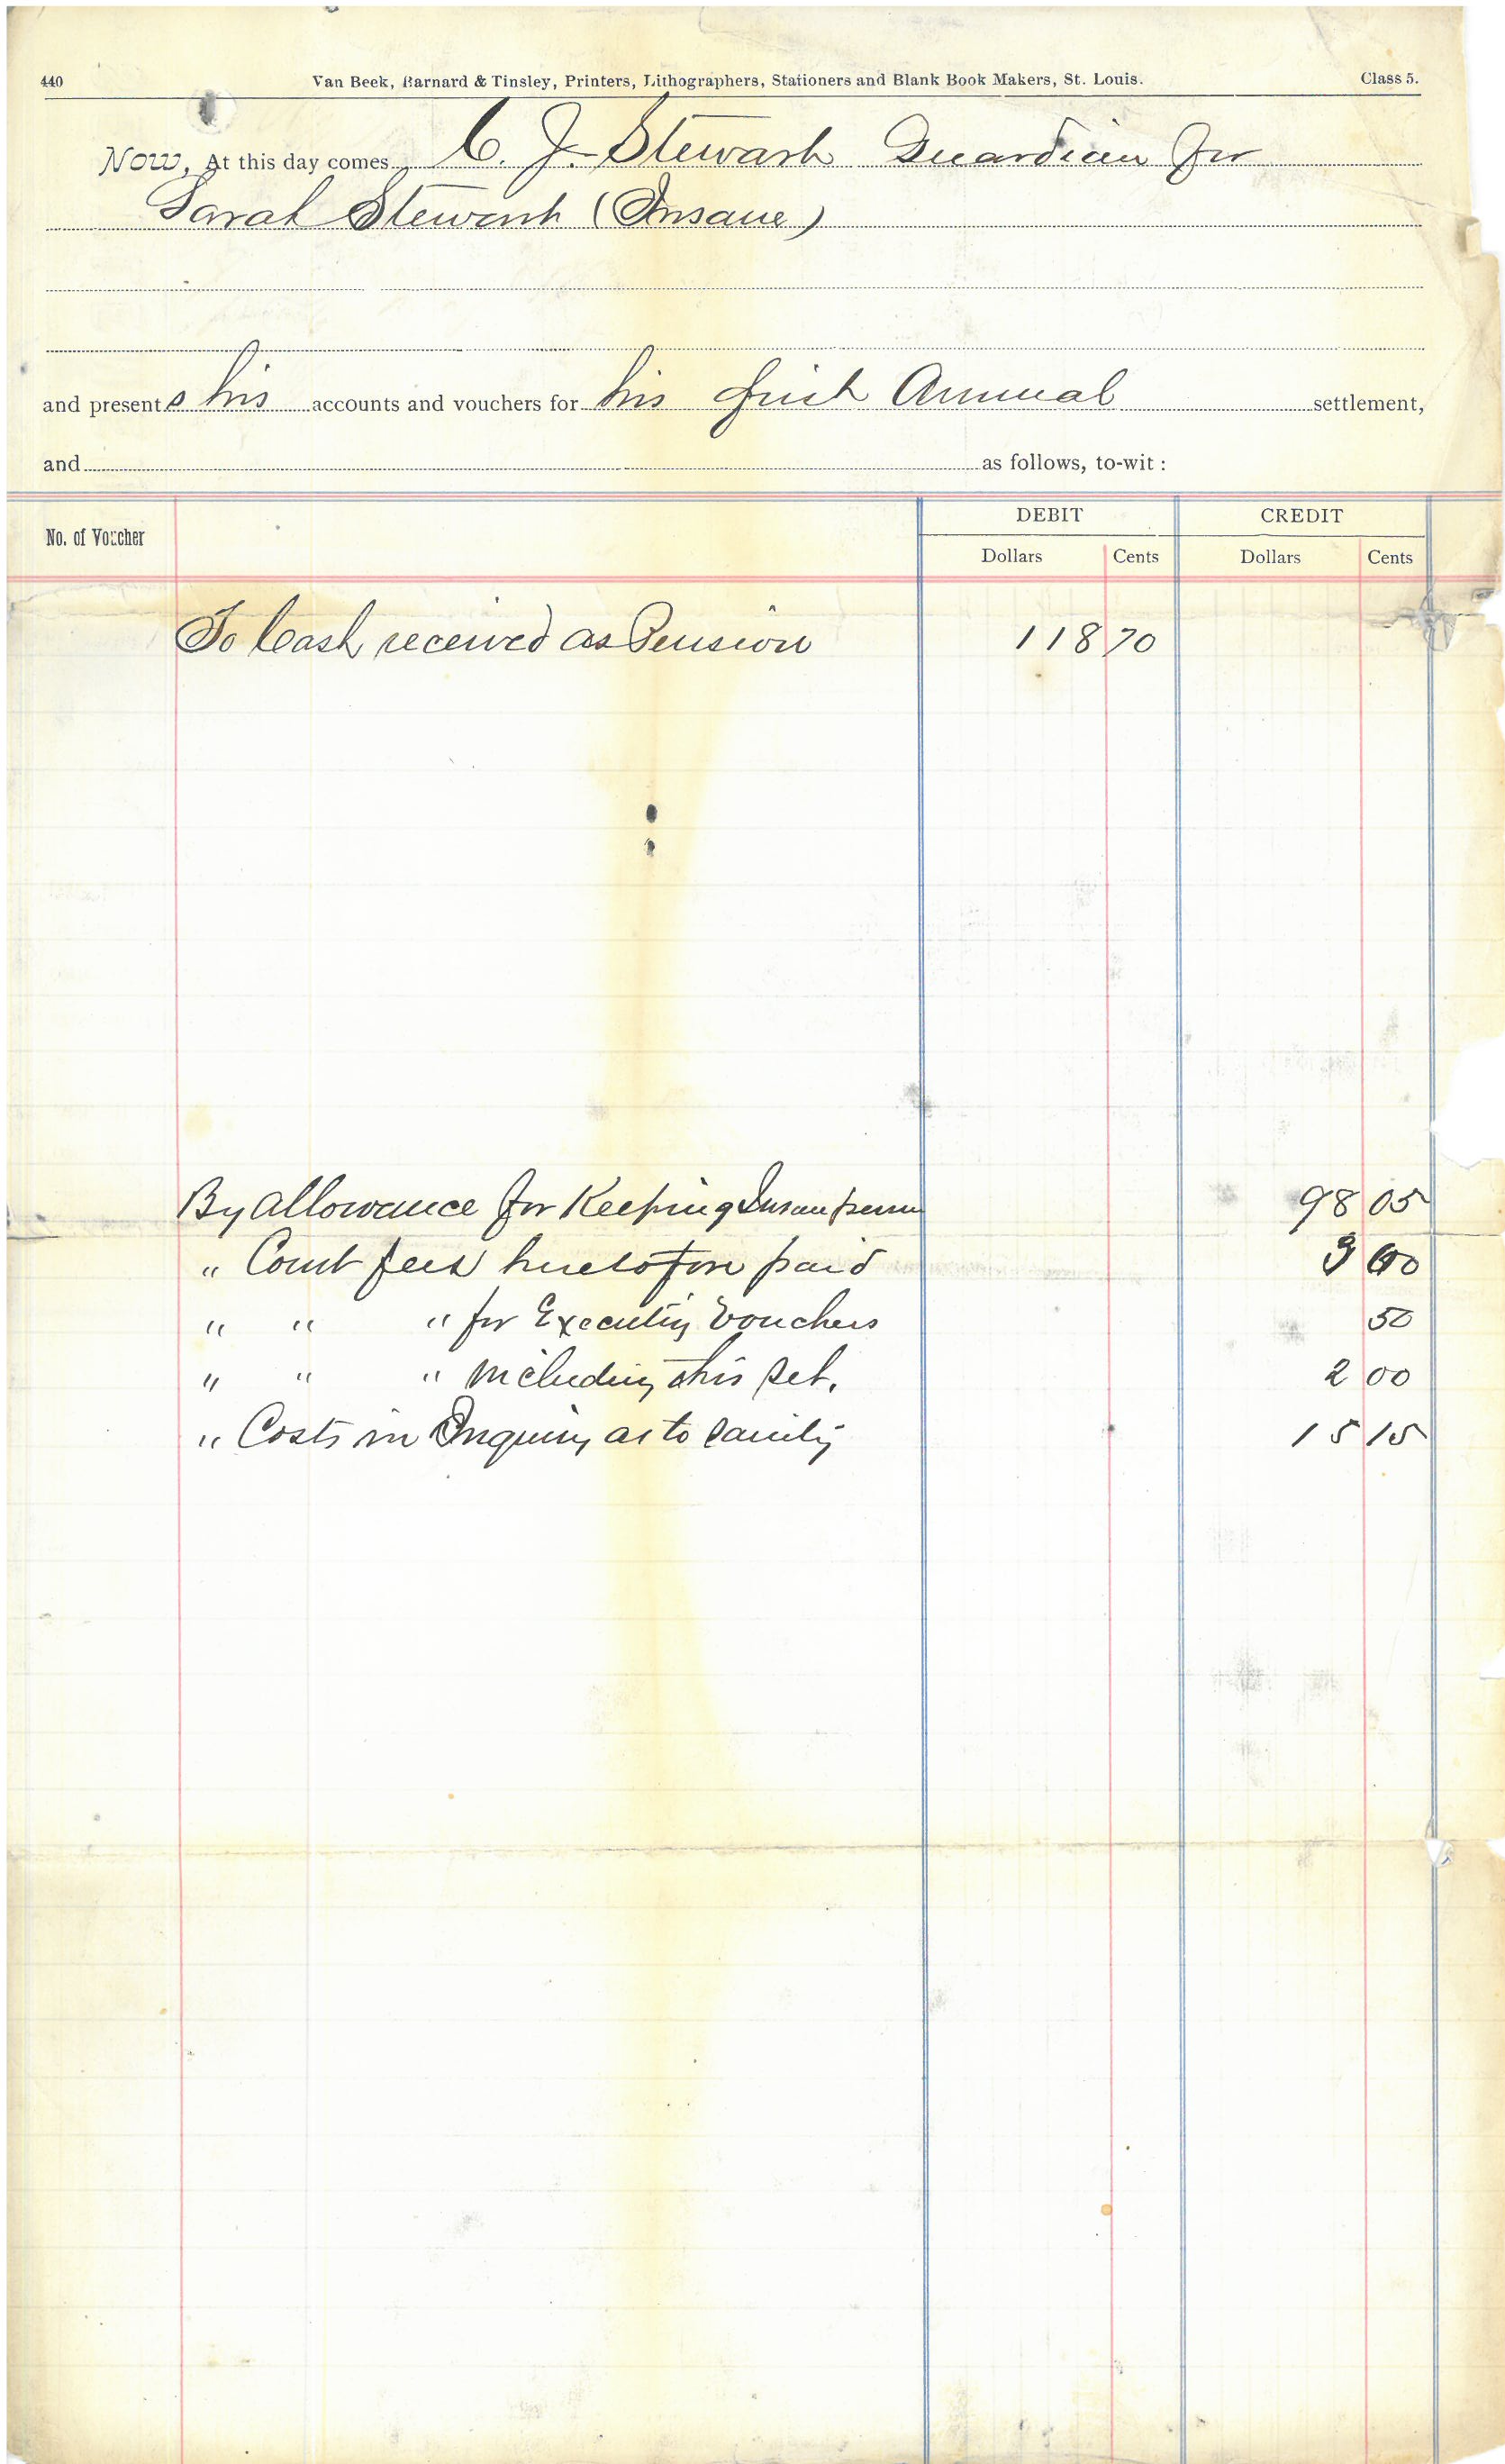 440 Van Beek, Barnard & Tinsley, Printers, Lithographers, Stationers and Blank Book Makers, St. Louis. Class 5.
Now, At this day comes C. J. Stewart Guardian for
Sarah Stewart (Insane)
and presents his accounts and vouchers for his first Annual settlement,
and as follows, to-wit:
DEBIT CREDIT
No. of Voucher Dollars Cents Dollars Cents
To Cash received as Pension 118 70
By Allowance for Keeping Insane person 98 05
" Court fees heretofore paid 3 00
" " " for Executing Vouchers 50
" " " including this set. 2 00
" Costs in Inquiry as to sanity 15 15